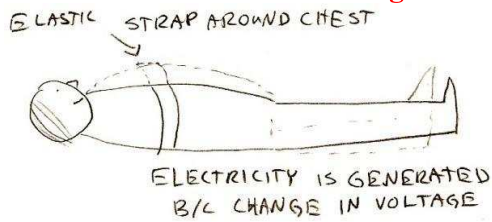 ELASTIC STRAP AROUND CHEST
ELECTRICITY IS GENERATED
B/C CHANGE IN VOLTAGE